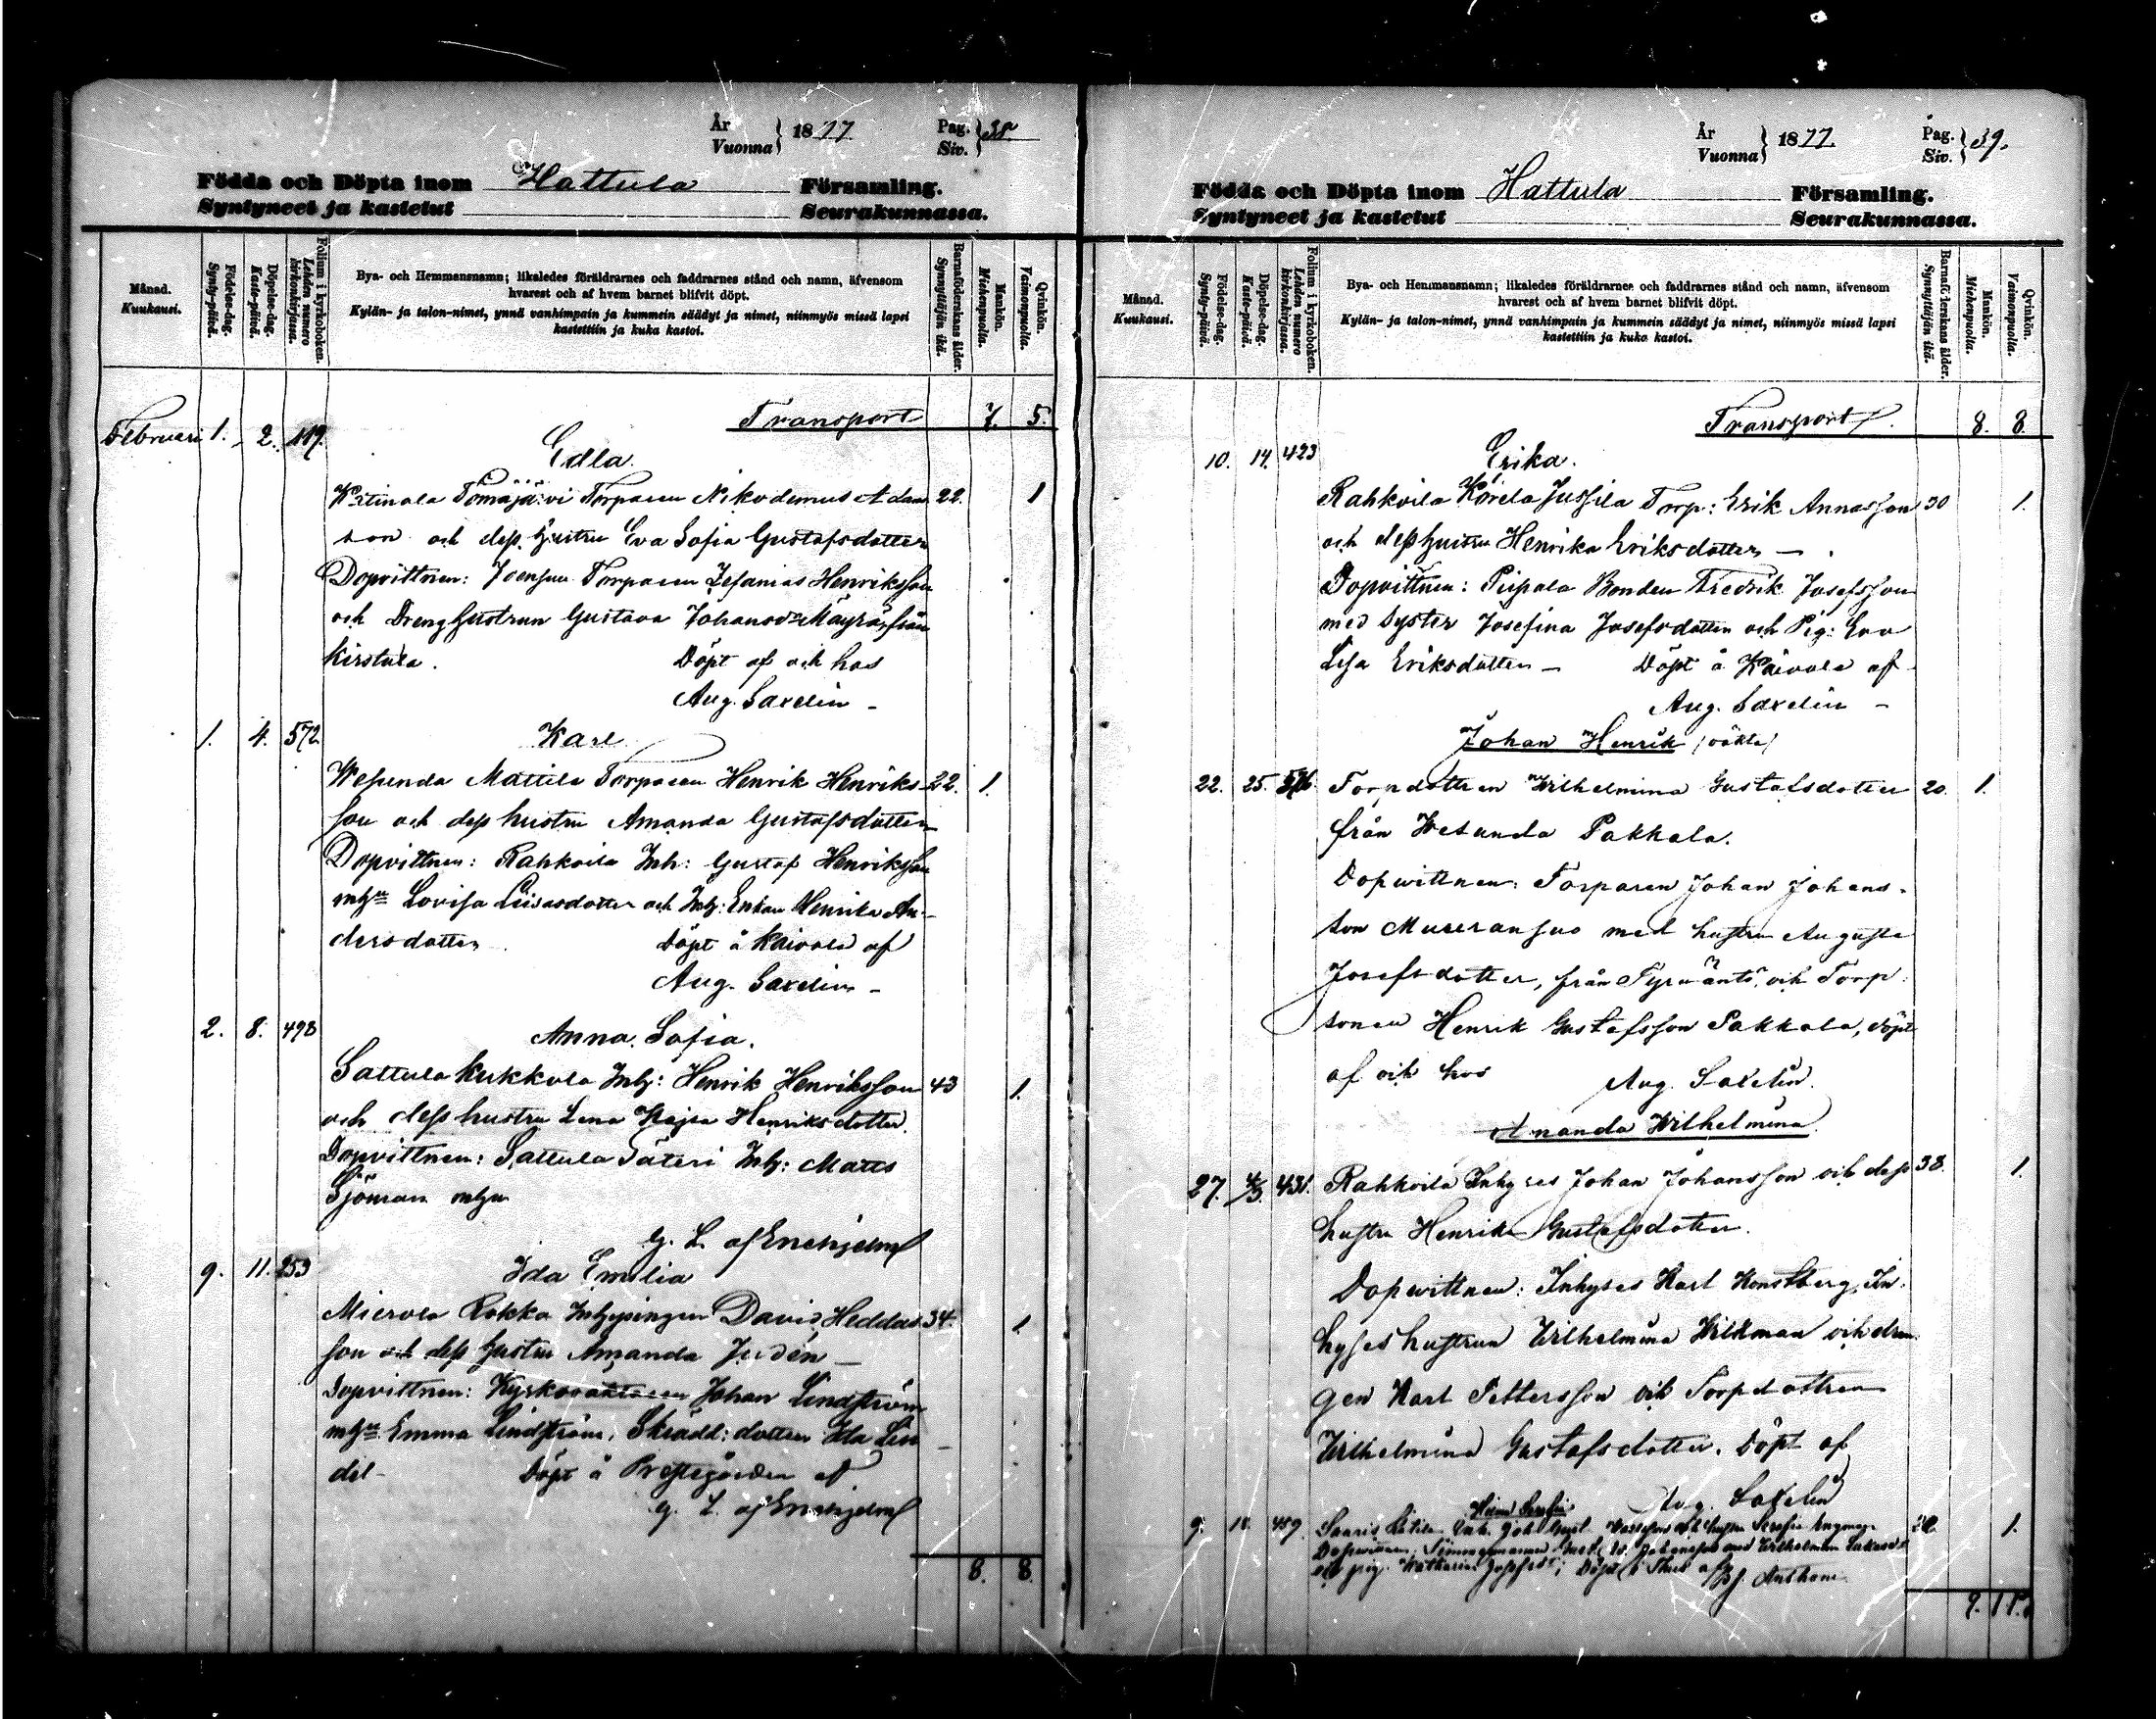 År
Vuonna
1877
Pag.
Siv.
38.
Födda och Döpta inom Hattula Församling.
Syntyneet ja kastetut Seurakunnassa.
Månad.
Kuukausi.
Födelse-dag.
Synty-päivä.
Döpelse-dag.
Kaste-päivä.
Folium i kyrkoboken.
Lehden numero
kirkonkirjassa.
Bya- och Hemmansnamn; likaledes föräldrarnes och faddrarnes stånd och namn, äfvensom
hvarest och af hvem barnet blifvit döpt.
Kylän- ja talon-nimet, ynnä vanhimpain ja kummein säädyt ja nimet, niinmyös missä lapsi
kastettiin ja kuka kastoi.
Barnaföderskans ålder.
Synnyttäjän ikä.
Mankön.
Miehenpuolia.
Qvinkön.
Vaimonpuolia.
Transport 7. 5.
Februari 1. 2. 119.
Edla.
Torparen Nikodemus Adams 22. 1
son och dess hustru Eva Sofia Gustafsdotter
Dopvittnen: Joensuu Torparen Zefanias Henriksson
och Drenghustrun Gustava Johansdr Mäyrä, från
Kirstula. Döpt af och hos
Aug. Saxelin –
1. 4. 572
Karl
Wesunda Mattila Torparen Henrik Henriks- 22. 1.
son och dess hustru Amanda Gustafsdotter
Dopvittnen: Rahkoila Inh: Gustaf Henriksson
mhu Lovisa Liisasdotter och Inh: Enkan Henrika An-
dersdotter. Döpt å Kaivola af
Aug. Saxelin –
2. 8. 498
Anna Sofia.
Sattula Kukkola Inh: Henrik Henriksson 43 1.
och dess hustru Lena Kajsa Henriksdotter.
Dopvittnen: Sattula Säteri Inh: Matts
Sjöman mhu
G. L. af Enehjelm
9. 11. 253
Ida Emilia
Mierola Rokka Inhysingen David Heddas 34 1.
son och dess hustru Amanda Judén –
Dopvittnen: Kyrkovaktaren Johan Lindström
mhu Emma Lindström, Skrädd: dotter Ida Lin
del – Döpt å Prestegården af
G. L. af Enehjelm
8. 8.
År
Vuonna
1877.
Pag.
Siv.
39.
Födda och Döpta inom Hattula Församling.
Syntyneet ja kastetut Seurakunnassa.
Månad.
Kuukausi.
Födelse-dag.
Synty-päivä.
Döpelse-dag.
Kaste-päivä.
Folium i kyrkoboken.
Lehden numero
kirkonkirjassa.
Bya- och Hemmansnamn; likaledes föräldrarnes och faddrarnes stånd och namn, äfvensom
hvarest och af hvem barnet blifvit döpt.
Kylän- ja talon-nimet, ynnä vanhimpain ja kummein säädyt ja nimet, niinmyös missä lapsi
kastettiin ja kuka kastoi.
Barnaföderskans ålder.
Synnyttäjän ikä.
Mankön.
Miehenpuolia.
Qvinkön.
Vaimonpuolia.
Transport 8. 8.
10. 14. 423
Erika.
Rahkoila Jussila Torp: Erik Annasson 30 1.
och dess hustru Henrika Eriksdotter –
Dopvittnen: Pirpala Bonden Fredrik Josefsson
med syster Josefina Josefsdotter och Pig: Eva
Lisa Eriksdotter – Döpt å Kaivola af
Aug. Saxelin –
Johan Henrik (oäkta)
22. 25. Torpdottren Wilhelmina Gustafsdotter 20. 1.
från Wesunda Pakkala.
Dopwittnen: Torparen Johan Johans-
son Muuransuo med hustru Augusta
Josefsdotter, från Tyrwäntö, och Torp:
sonen Henrik Gustafsson Pakkala, döpt
af och hos Aug. Saxelin.
Amanda Wilhelmina
27. 4/3. 431. Rahkoila Inhyses Johan Johansson och dess 38. 1.
hustru Henrika Gustafsdotter.
Dopwittnen: Inhyses Karl Konstberg, In-
hyses hustrun Wilhelmina Wilkman och dren
gen Karl Pettersson och Torpdottren
Wilhelmina Gustafsdotter. Döpt af
Aug. Saxelin
9. 459. Saaris 1.
9. 11.